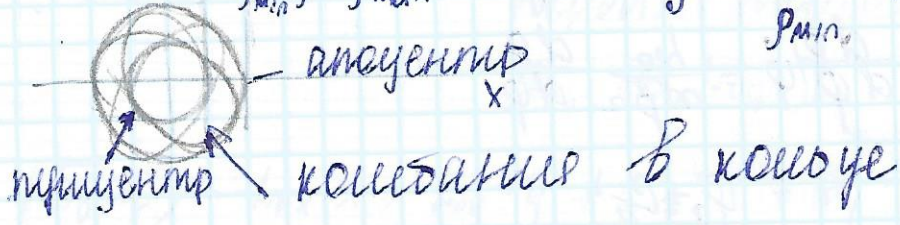 ρmin.
апоцентр
x
перицентр колебания в кольце